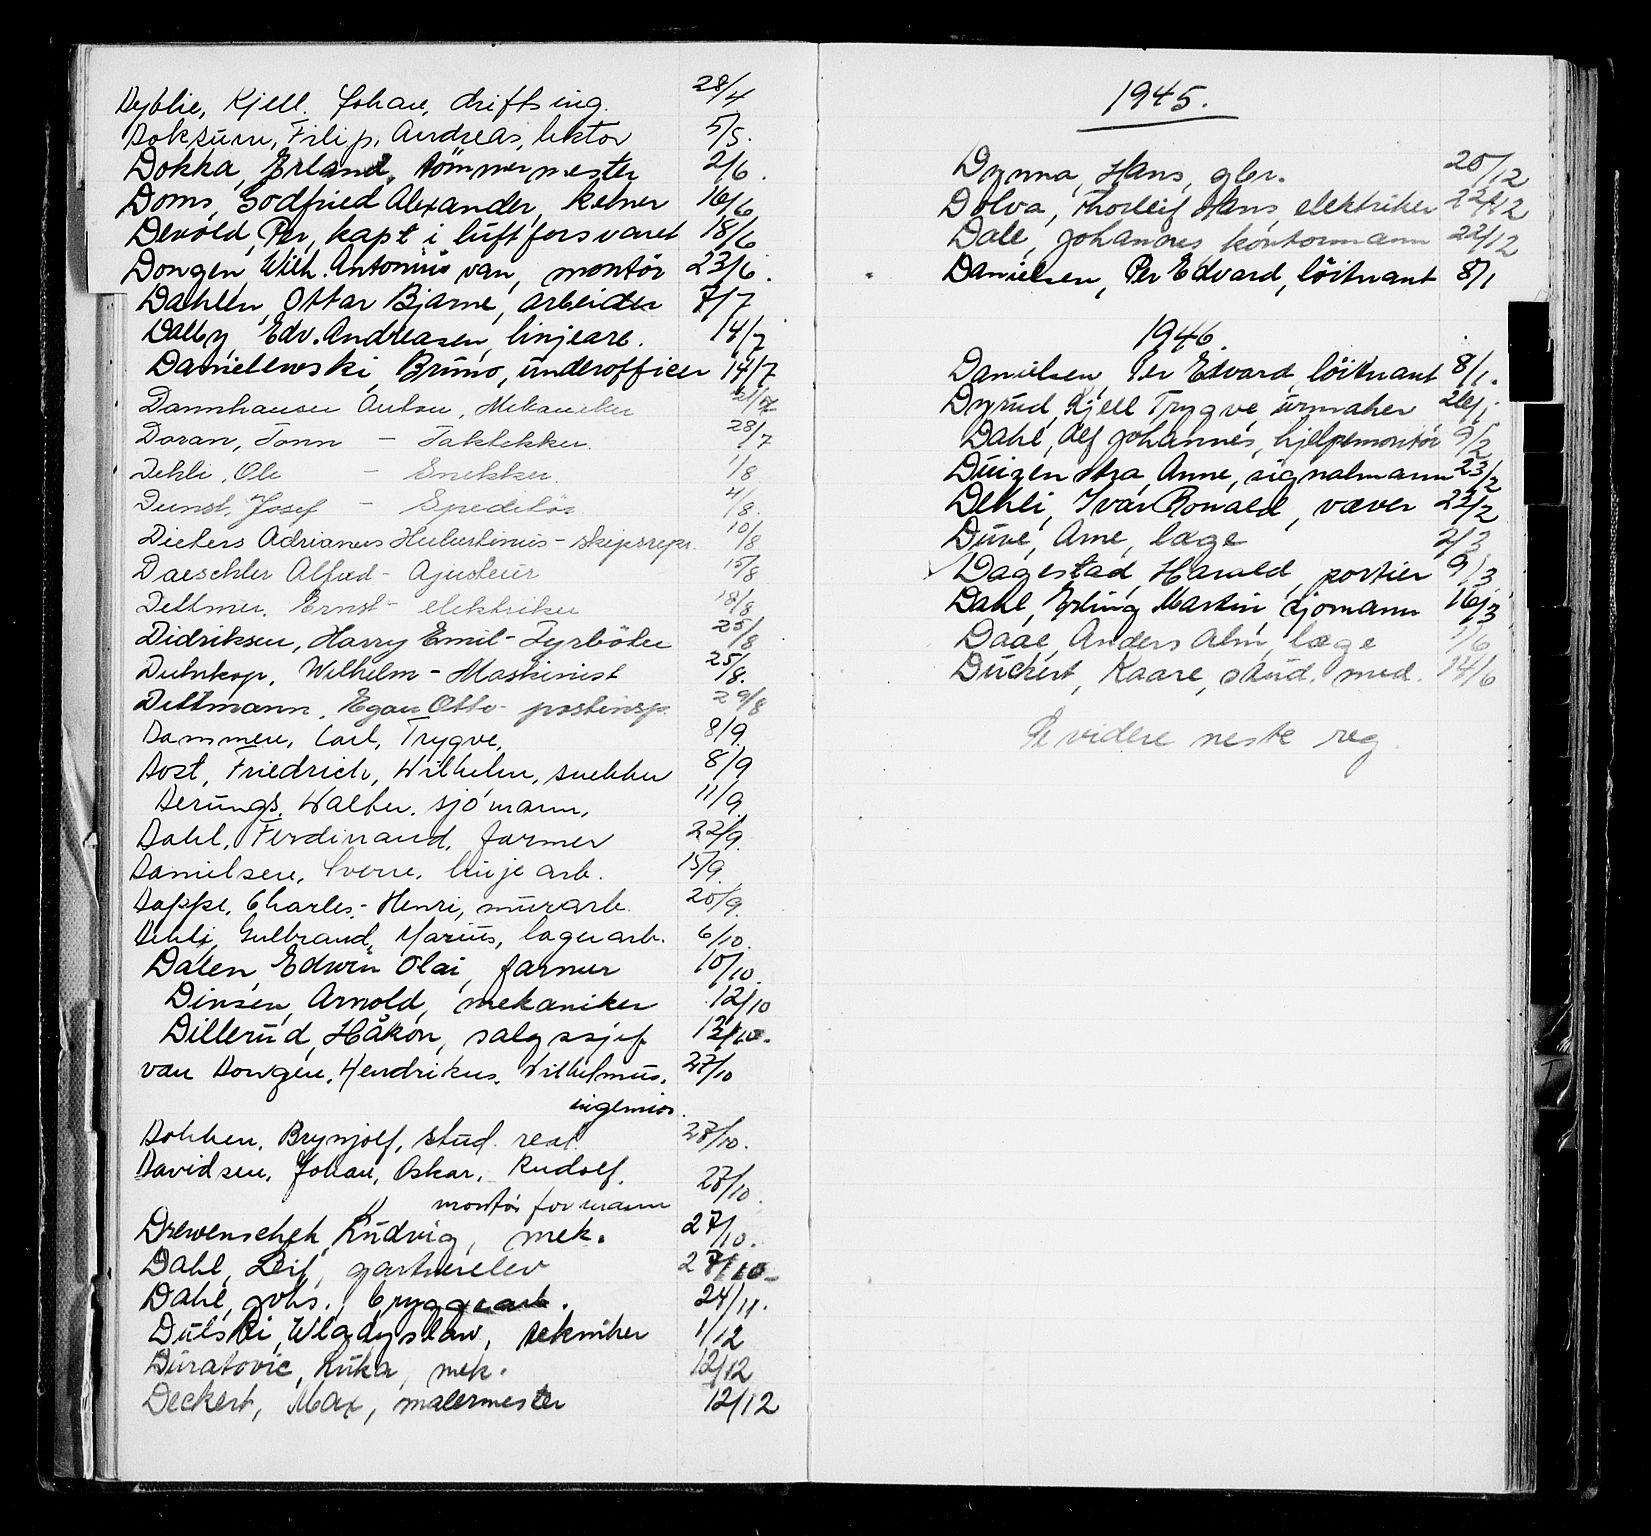 Dyblie, Kjell. Johan, driftsing. 28/4
Doksum, Filip, Andreas, lektor 5/5.
Dokka, Erland, tömmermester 2/6.
Doms, Godfried Alexander, kelner 16/6
Devold, Per, kapt i luftforsvaret 18/6
Dongen, Wilh. Antonius van, montör 23/6.
Dahlen, Ottar Bjarne, arbeider 7/7
Dalby, Edv. Andreasen, linjearb. 14/7
Danielewski, Bruno, underofficer 14/7
Dannhauser Anton, Mekaniker
Doran, Tonn - Taktekker. 28/7
Dehli, Ole - Snekker. 1/8
Dunst, Josef - Speditör 4/8.
Dieters Adrianus Hubertinus - skipsrepr. 10/8
Daeschler Alfred - Ajusteur 15/8
Dettmer, Ernst - elektriker 18/8
Didriksen, Harry Emil - Fyrböter 25/8
Duhrkop, Wilhelm - Maskinist 25/8.
Dittmann, Egon Otto - postinsp. 29/8
Dammen, Carl, Trygve, 8/9.
Dost, Friedrich, Wilhelm, snekker 8/9
Derungs, Walter, sjömann, 11/9.
Dahl, Ferdinand, farmer 22/9.
Danielsen, Sverre, linjearb. 15/9.
Dappe, Charles, - Henri, murarb. 20/9.
Dehli, Gulbrand, Marius, lagerarb. 6/10.
Dalen, Edwin Olai, farmer 10/10.
Dinsen, Arnold, mekaniker 12/10
Dillerud, Håkon, salgssjef 13/10.
van Dongen, Hendrikus, Wilhelmus, 27/10
ingeniör.
Dokken, Brynjolf, stud. real 27/10.
Davidsen, Johan, Oskar, Rudolf, 27/10.
montör formann
Drewenschek, Ludvig, mek. 27/10.
Dahl, Leif, gartnerelev 27/10
Dahl, Johs., bryggearb. 24/11.
Dulski, Wladyslaw, tekniker 1/12
Duratovic, Luka, mek. 12/12
Deckert, Max, malermester 12/12
1945.
Dynna, Hans, gbr. 20/12
Dolva, Thorleif Hans, elektriker 22/12
Dale, Johannes, kontormann 22/12
Danielsen, Per Edvard, löitnant 8/1
1946.
Danielsen, Per Edvard, löitnant 8/1.
Dyrud, Kjell Trygve, urmaker 26/1
Dahl, Alf Johannes, hjelpemontör 9/2
Duigenstra, Anne, signalmann 23/2
Dehli, Ivar Ronald, væver 22/2
Duve, Arne, læge 2/3
Dagestad, Harald, portier 9/3
Dahl, Erling Martin, sjömann 16/3
Daae, Anders Alm, læge 1/6
Duckert, Kaare, stud. med. 14/6
Se videre neste reg.